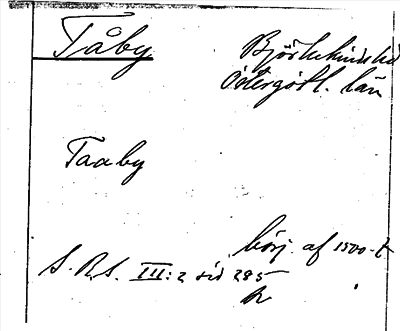 Tåby Björkekinds hd
Östergötl. län
Taaby
börj. af 1500-t
S.R.S. III:2 sid 285